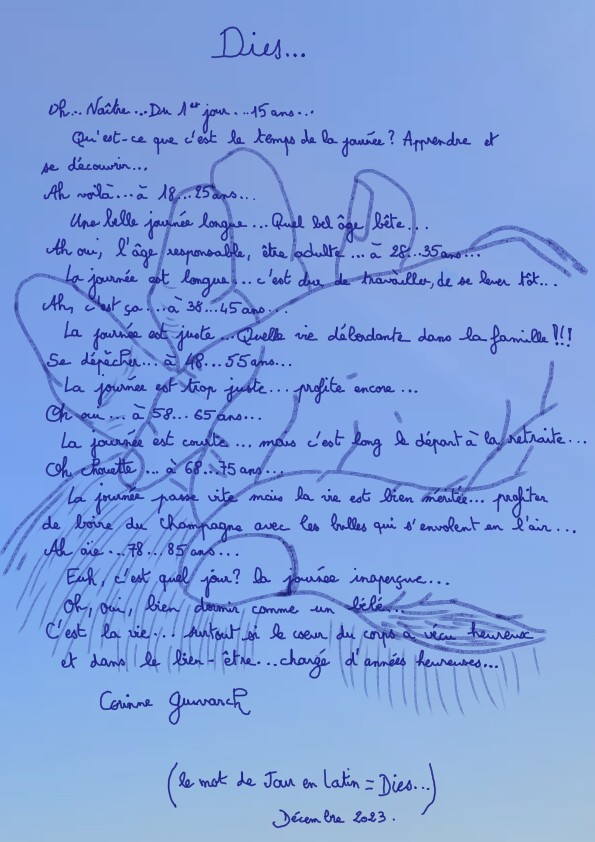 Dies...
Oh... Naître... Du 1er jour...15 ans...
Qu'est-ce que c'est le temps de la journée? Apprendre et
se découvrir...
Ah voilà... à 18...25ans...
Une belle journée longue... Quel bel âge bête...
Ah oui, l'âge responsable, être adulte... à 28...35ans...
La journée est longue... c'est dur de travailler, de se lever tôt...
Ah, c'est ça... à 38...45 ans...
La journée est juste... Quelle vie débordante dans la famille!!!
Se dépêcher... à 48...55ans...
La journée est trop juste... profite encore...
Oh oui... à 58...65ans...
La journée est courte... mais c'est long le départ à la retraite...
Oh chouette... à 68...75ans...
La journée passe vite mais la vie est bien méritée... profiter
de boire du champagne avec les bulles qui s'envolent en l'air...
Ah aïe...78...85ans...
Euh, c'est quel jour? La journée inaperçue...
Oh, oui, bien dormir comme un bébé...
C'est la vie... surtout si le coeur du corps a vécu heureux
et dans le bien-être... chargé d'années heureuses...
Corinne
(le mot de Jour en Latin = Dies...)
Décembre 2023.